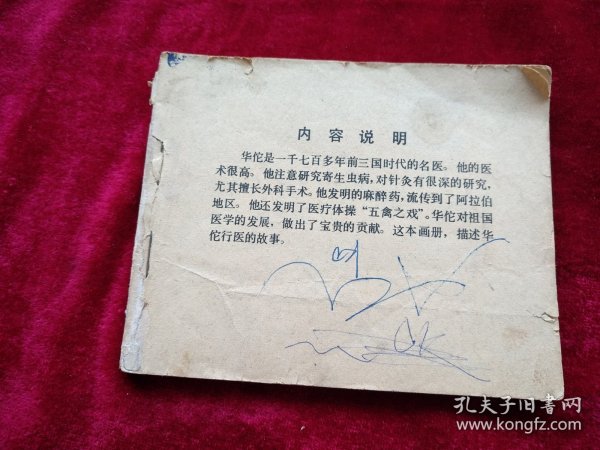 内容说明
华佗是一千七百多年前三国时代的名医。他的医
术很高。他注意研究寄生虫病，对针灸有很深的研究，
尤其擅长外科手术。他发明的麻醉药，流传到了阿拉伯
地区。他还发明了医疗体操“五禽之戏”。华佗对祖国
医学的发展，做出了宝贵的贡献。这本画册，描述华
佗行医的故事。
孔夫子旧书网
www.kongfz.com